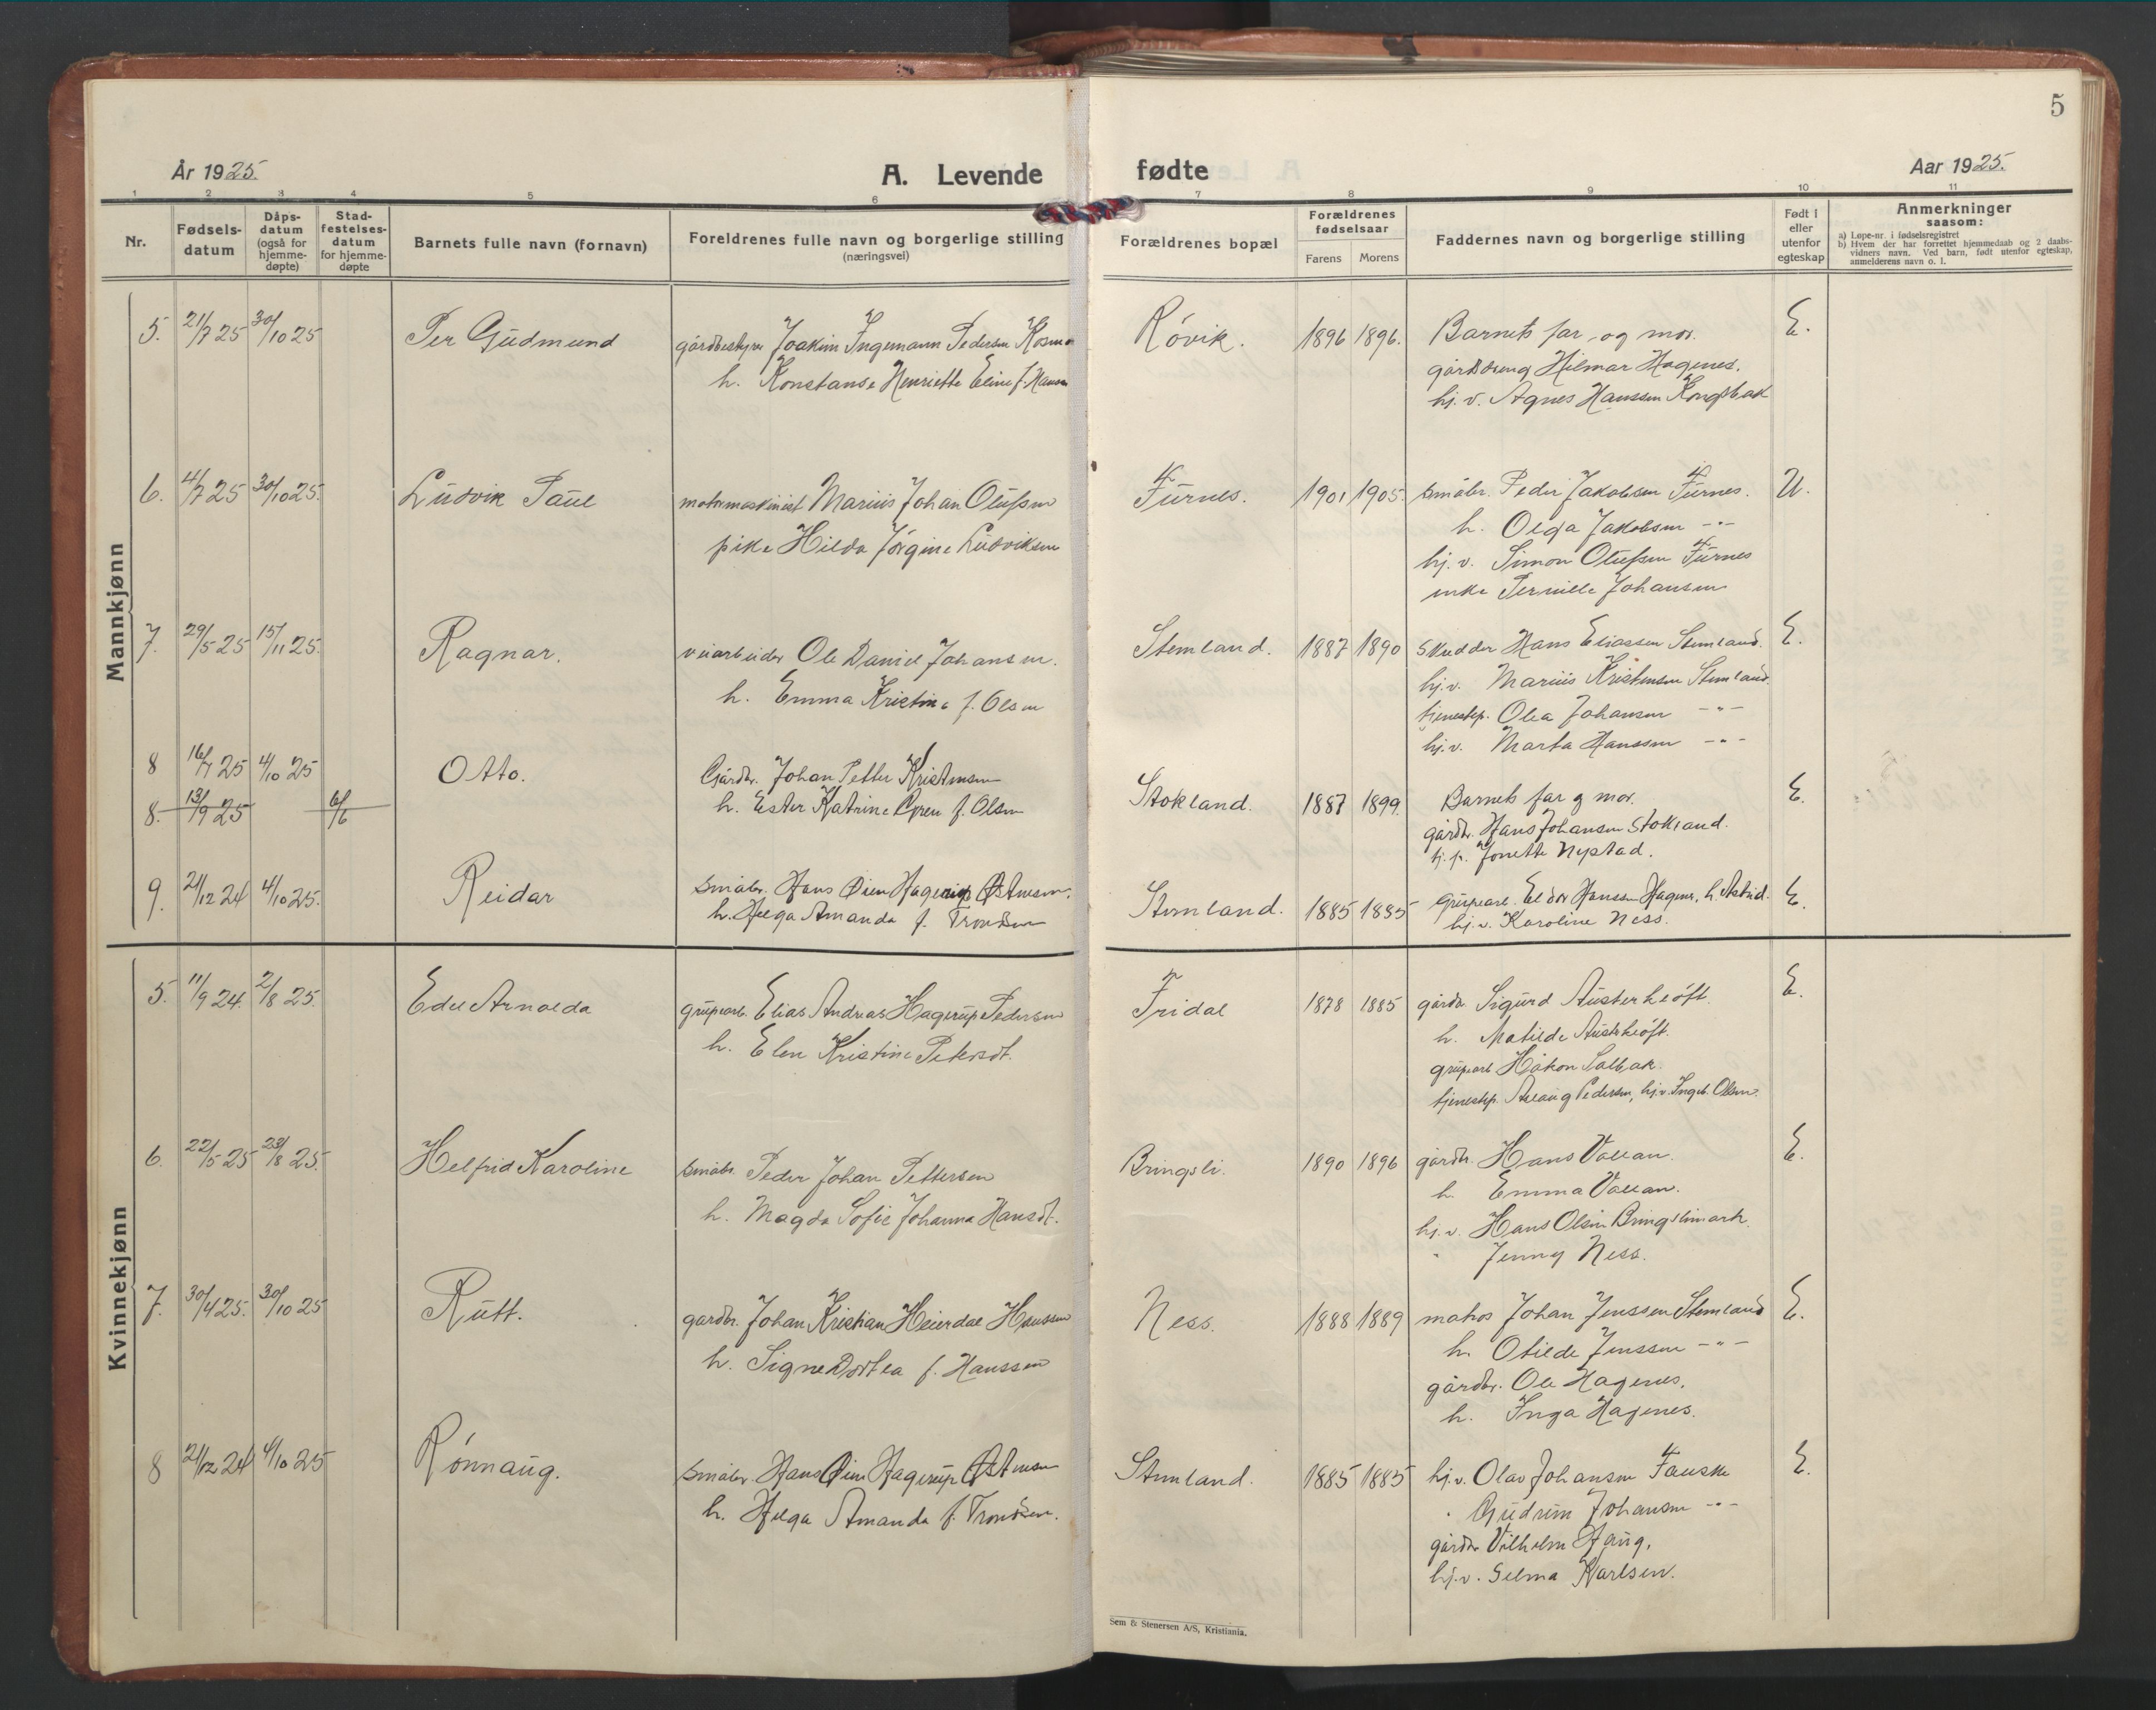 5
År 1925.
A. Levende fødte
Aar 1925.
1 2 3 4 5 6 7 8 9 10 11
Nr.
Fødsels-
datum
Dåps-
datum
(også for
hjemme-
døpte)
Stad-
festelses-
datum
for hjemme-
døpte
Barnets fulle navn (fornavn)
Foreldrenes fulle navn og borgerlige stilling
(næringsvei)
Forældrenes bopæl
Forældrenes
fødselsaar
Farens Morens
Faddernes navn og borgerlige stilling
Født i
eller
utenfor
egteskap
Anmerkninger
saasom:
a) Løpe-nr. i fødselsregistret
b) Hvem der har forrettet hjemmedaab og 2 daabs-
vidners navn. Ved barn, født utenfor egteskap,
anmelderens navn o. l.
Mannkjønn
5. 21/7 25 30/10 25 Per Gudmund gårdbestyrer Joakim Ingemann Pedersen Kosmo Røvik. 1896 1896. Barnets far og mor. E.
h. Konstanse Henriette Eline f. Hansen gårddreng Hilmar Hagenes.
hj. v. Agnes Hanssen Kongsbak
6. 4/7 25 30/10 25. Ludvik Paul motormaskinist Marius Johan Olufsen Furnes. 1901 1905. småbr. Peder Jakobsen Furnes. U.
pike Hilda Jørgine Ludviksen h. Olga Jakobsen -"-
hj. v. Simon Olufsen Furnes
enke Pernille Johansen
7. 29/5 25 15/11 25. Ragnar. veiarbeider Ole Daniel Johansen. Stemland. 1887 1890 Skredder Hans Eliassen Stemland. E.
h. Emma Kristine f. Olsen hj. v. Marius Kristensen Stemland.
tjenestep. Olea Johansen -"-
hj. v. Marta Hanssen -"-
8 16/7 25 4/10 25 Otto. Gårdbr. Johan Petter Kristensen Stokland. 1887 1899. Barnets far og mor. E.
8. 13/9 25 6/6 h. Ester Katrine f. Olsen gårdbr. Hans Johansen Stokland.
hj. p. Jonette Nystad.
9. 21/12 24 4/10 25. Reidar småbr. Hans Øien Hagerup Østensen. Stemland. 1885 1885 grubearb. Eldor Hanssen Hagenes, h. Astrid. E.
h. Helga Amanda f. Trondsen hj. v. Karoline Ness.
Kvinnekjønn
5. 11/9 24. 2/8 25. Edel Arnolda grubearb. Elias Andreas Hagerup Pedersen Fridal 1878 1885 gårdbr. Sigurd Austerkløft. E.
h. Elen Kristine Petersdt. h. Matilde Austerkløft.
grubearb. Håkon Solbak.
tjenestep. Aslaug Pedersen, hj. v. Ingeb. Olsen.
6. 22/5 25 23/8 25. Helfrid Karoline småbr. Peder Johan Pettersen Bringsli. 1890 1896 gårdbr. Hans Vallan. E.
h. Magda Sofie Johanna Hansdt. h. Emma Vallan.
hj. v. Hans Olsen Bringslimark.
" Jenny Ness.
7. 30/4 25. 30/10 25 Rutt. gårdbr. Johan Kristian Heierdal Hanssen Ness. 1888 1889 matros Johan Jenssen Stemland E.
h. Signe Dortea f. Hanssen h. Otilde Jenssen -"-
gårdbr. Ole Hagenes.
h. Inga Hagenes.
8 21/12 24 4/10 25 Rønnaug. småbr. Hans Øien Hagerup Østensen Stemland. 1885 1885 hj. v. Olav Johansen Fauske E.
h. Helga Amanda f. Trondsen. " Gudrun Johansen -"-
gårdbr. Vilhelm Haug.
hj. v. Selma Karlsen.
Sem & Stenersen A/S, Kristiania.